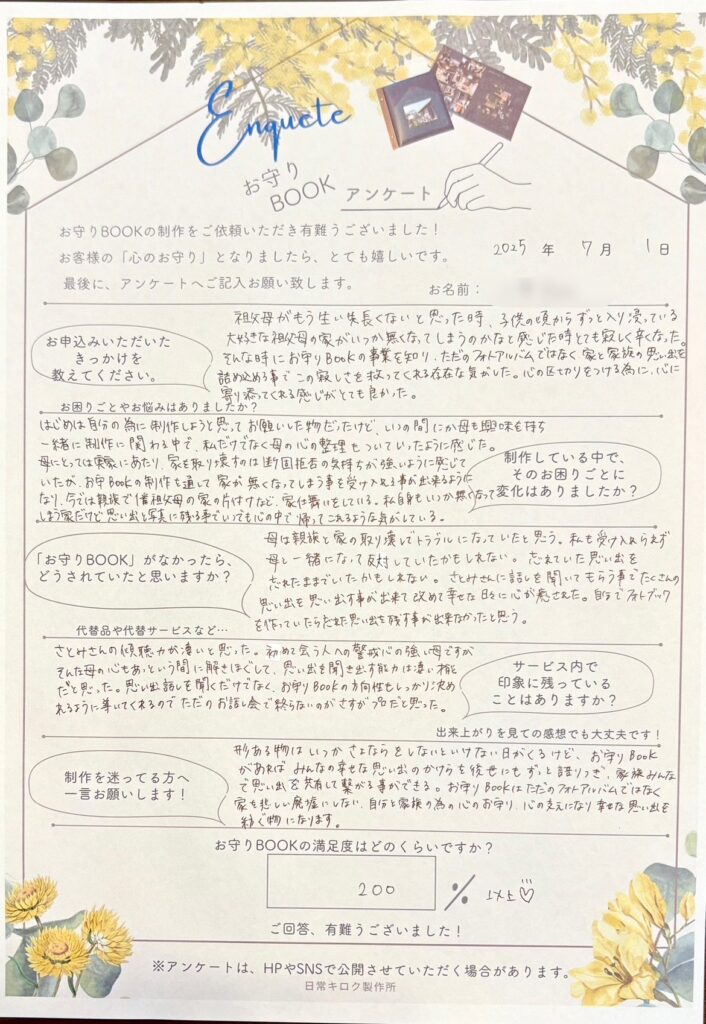 Enquete
お守り
BOOK
アンケート
お守りBOOKの制作をご依頼いただき有難うございました！
お客様の「心のお守り」となりましたら、とても嬉しいです。
最後に、アンケートへご記入お願い致します。
2025 年 7 月 1 日
お名前：
お申込みいただいた
きっかけを
教えてください。
お困りごとやお悩みはありましたか？
祖父母がもう生い先長くないと思った時、子供の頃からずっと入り浸っている
大好きな祖父母の家がいつか無くなってしまうのかなと感じた時とても寂しく辛くなった。
そんな時にお守りBookの事業を知り、ただのフォトアルバムではなく家と家族の思い出を
詰め込める事でこの寂しさを救ってくれる存在な気がした。心の区切りをつける為に、心に
寄り添ってくれる感じがとても良かった。
はじめは自分の為に制作しようと思ってお願いした物だったけど、いつの間にか母も興味を持ち
一緒に制作に関わる中で、私だけでなく母の心の整理もついていったように感じた。
母にとっては実家にあたり、家を取り壊すのは断固拒否の気持ちが強いように感じて
いたが、お守りBookの制作を通して家が無くなってしまう事を受け入れる事が出来るように
なり、今では親族で祖父母の家の片付けなど、家仕舞いをしている。私自身もいつか無くなって
しまう家だけど思い出と写真に残る事でいつでも心の中で帰ってこれるような気がしている。
制作している中で、
そのお困りごとに
変化はありましたか？
「お守りBOOK」がなかったら、
どうされていたと思いますか？
代替品や代替サービスなど…
母は親族と家の取り壊しでトラブルになっていたと思う。私も受け入れられず
母と一緒になって反対していたかもしれない。忘れていた思い出を
忘れたままでいたかもしれない。さとみさんに話しを聞いてもらう事でたくさんの
思い出を思い出す事が出来て改めて幸せな日々に心が癒された。自分でフォトブック
を作っていたら忘れた思い出を残す事が出来なかったと思う。
さとみさんの傾聴力が凄いと思った。初めて会う人への警戒心の強い母ですが
そんな母の心もあっという間に解きほぐして、思い出を聞き出す能力は凄い
だと思った。思い出話しを聞くだけでなく、お守りBookの方向性もしっかり決め
れるように導いてくれるのでただのお話し会で終らないのがさすがプロだと思った。
サービス内で
印象に残っている
ことはありますか？
出来上がりを見ての感想でも大丈夫です！
制作を迷ってる方へ
一言お願いします！
形ある物はいつかさよならをしないといけない日がくるけど、お守りBook
があればみんなの幸せな思い出のかけらを後世にもずっと語りつぎ、家族みんな
で思い出を共有して繋がる事ができる。お守りBookはただのフォトアルバムではなく
家を悲しい廃墟にしない、自分と家族の為の心のお守り、心の支えになり幸せな思い出を
紡ぐ物になります。
お守りBOOKの満足度はどのくらいですか？
200 % 以上♡
ご回答、有難うございました！
※アンケートは、HPやSNSで公開させていただく場合があります。
日常キロク製作所